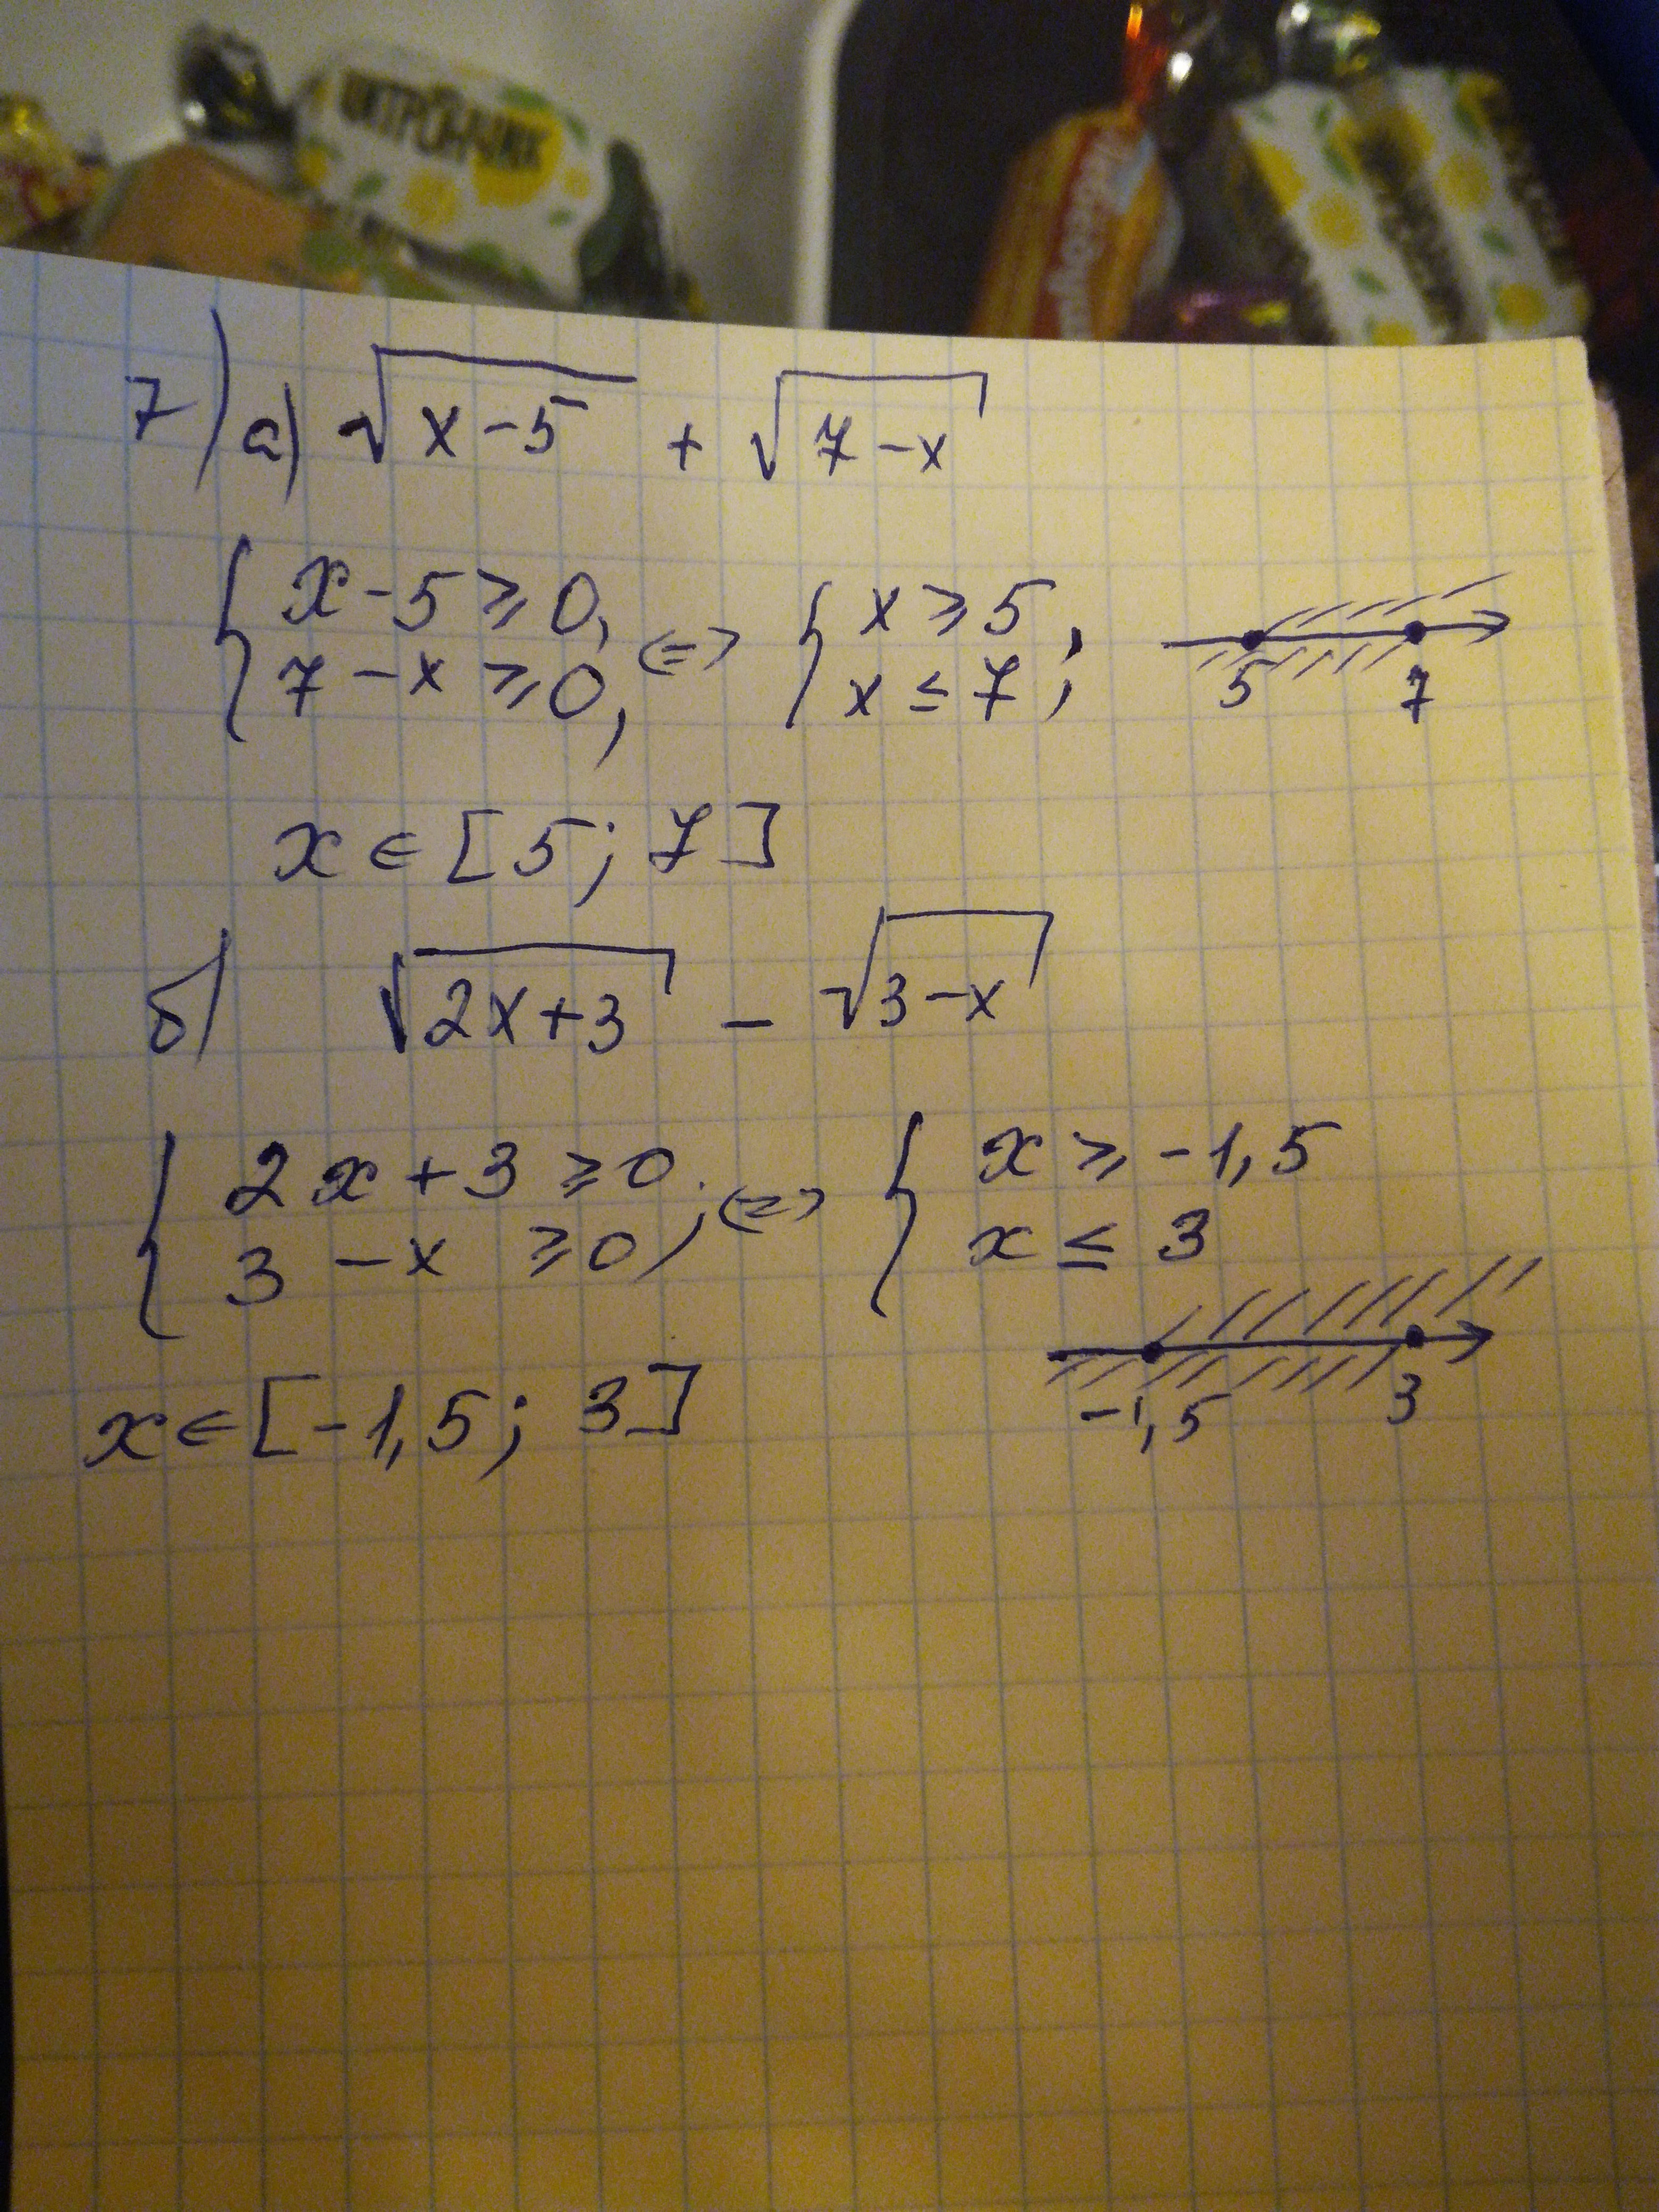 ЦИТРОН-ЧИК
7) а) √x-5 + √7-x
{ x-5 ⩾ 0, 7-x ⩾ 0, <=> { x ⩾ 5 x ≤ 7 ; 5 7
x ∈ [5; 7]
б) √2x+3 - √3-x
{ 2x+3 ⩾ 0, 3-x ⩾ 0, <=> { x ⩾ -1,5 x ≤ 3
-1,5 3
x ∈ [-1,5; 3]